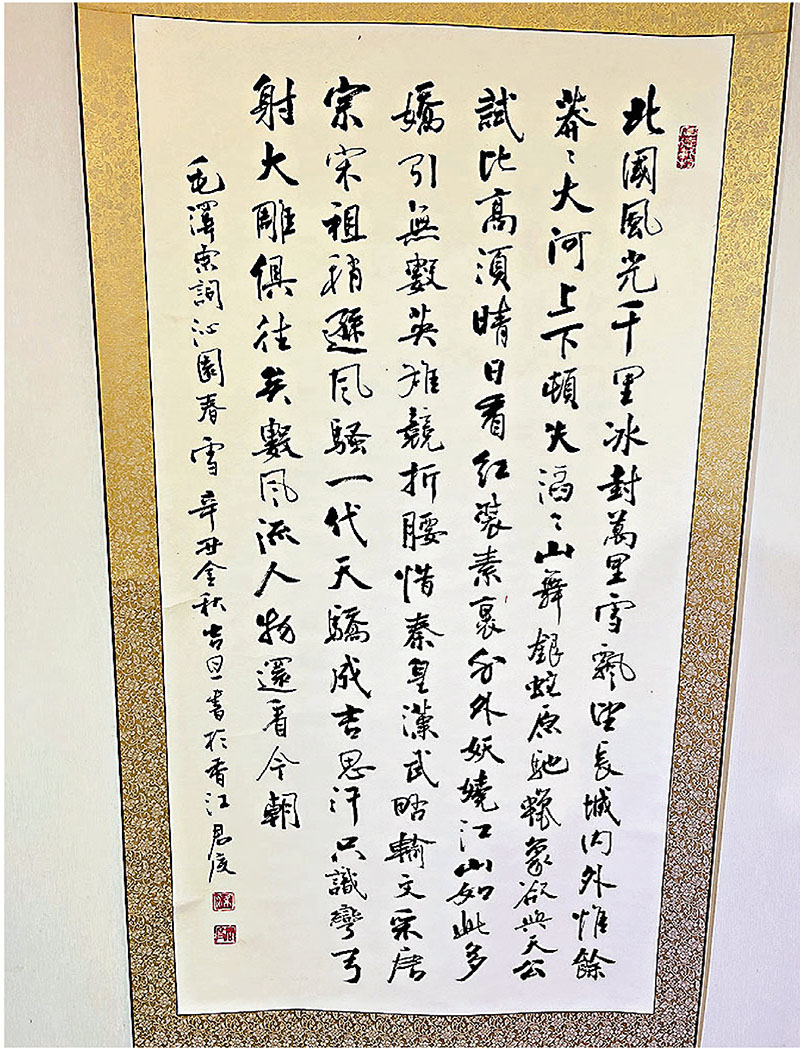 北國風光千里冰封萬里雪飄望長城內外惟餘
莽〻大河上下頓失滔〻山舞銀蛇原馳蠟象欲與天公
試比高須晴日看紅裝素裹分外妖嬈江山如此多
嬌引無數英雄競折腰惜秦皇漢武略輸文采唐
宗宋祖稍遜風騷一代天驕成吉思汗只識彎弓
射大雕俱往矣數風流人物還看今朝
毛澤東詞沁園春雪 辛丑金秋吉旦書於香江 君度